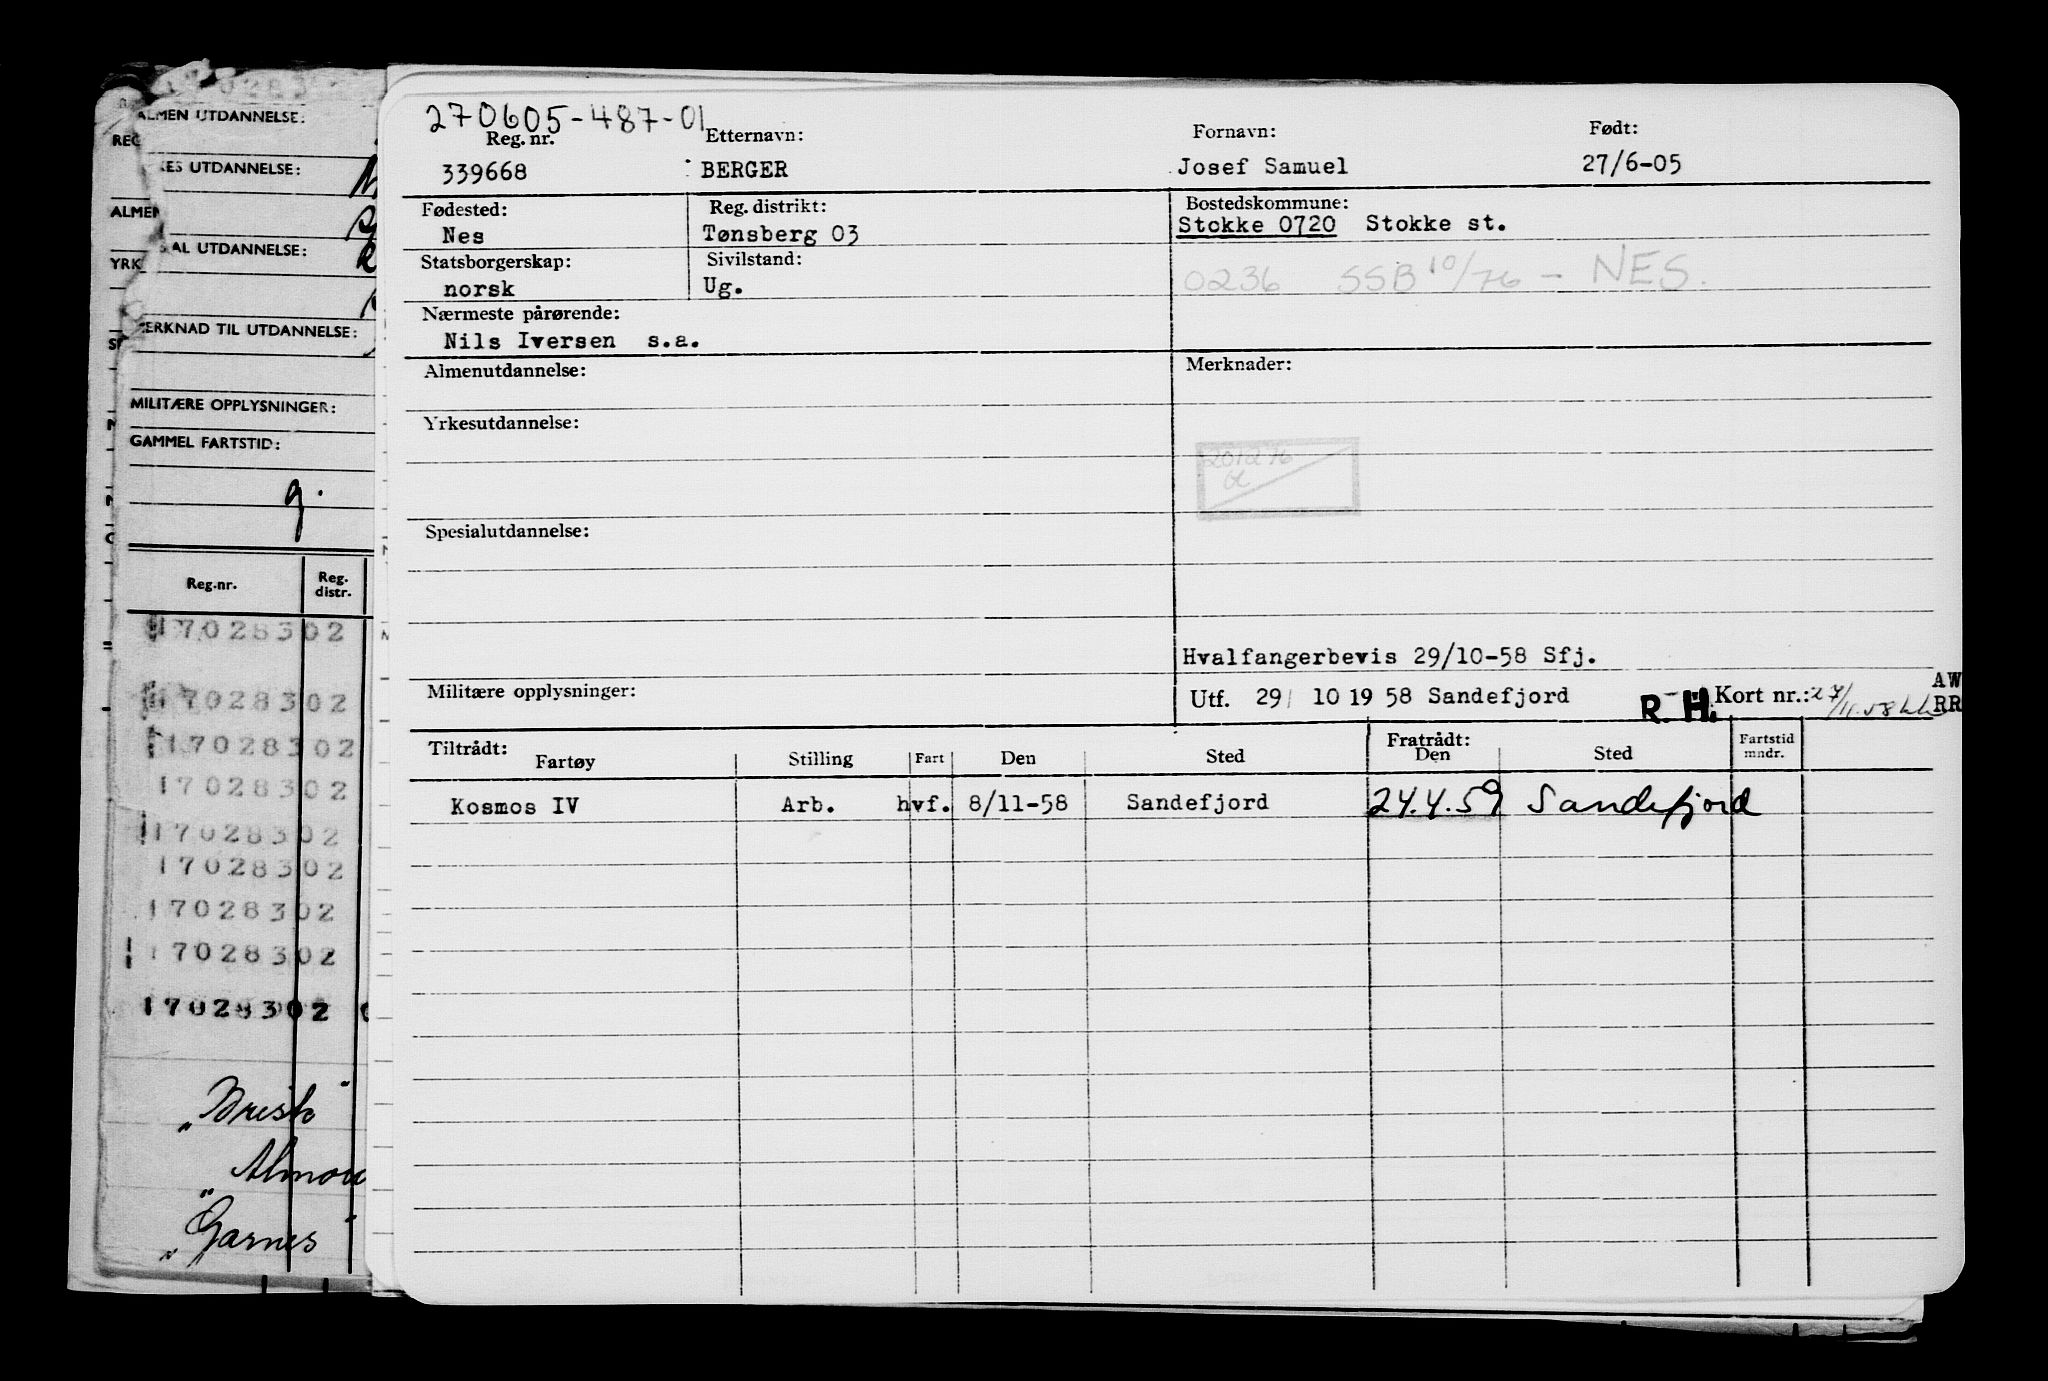 270605-487-01
Reg. nr. Etternavn: Fornavn: Født:
339668 BERGER Josef Samuel 27/6-05
Fødested: Reg. distrikt: Bostedskommune:
Nes Tønsberg 03 Stokke 0720 Stokke st.
Statsborgerskap: Sivilstand:
norsk Ug. 0236 SSB 10/76 - NES.
Nærmeste pårørende:
Nils Iversen s.a.
Almenutdannelse: Merknader:
Yrkesutdannelse:
201276
Spesialutdannelse:
Hvalfangerbevis 29/10-58 Sfj.
Militære opplysninger: Utf. 29/ 10 19 58 Sandefjord R. H. Kort nr.: 27/11.58 AW
RR
Tiltrådt: Fratrådt: Fartstid
Fartøy Stilling Fart Den Sted Den Sted mndr.
Kosmos IV Arb. hvf. 8/11-58 Sandefjord 24.4.59 Sandefjord
170283
ALMEN UTDANNELSE:
REG
KES UTDANNELSE:
ALMEN
AL UTDANNELSE:
YRK
ERKNAD TIL UTDANNELSE:
MILITÆRE OPPLYSNINGER:
GAMMEL FARTSTID:
g.
Reg.nr. Reg. distr.
17028302
17028302
17028302
17028302
17028302
17028302
17028302
17028302
17028302
"Brisk"
"Garnes"